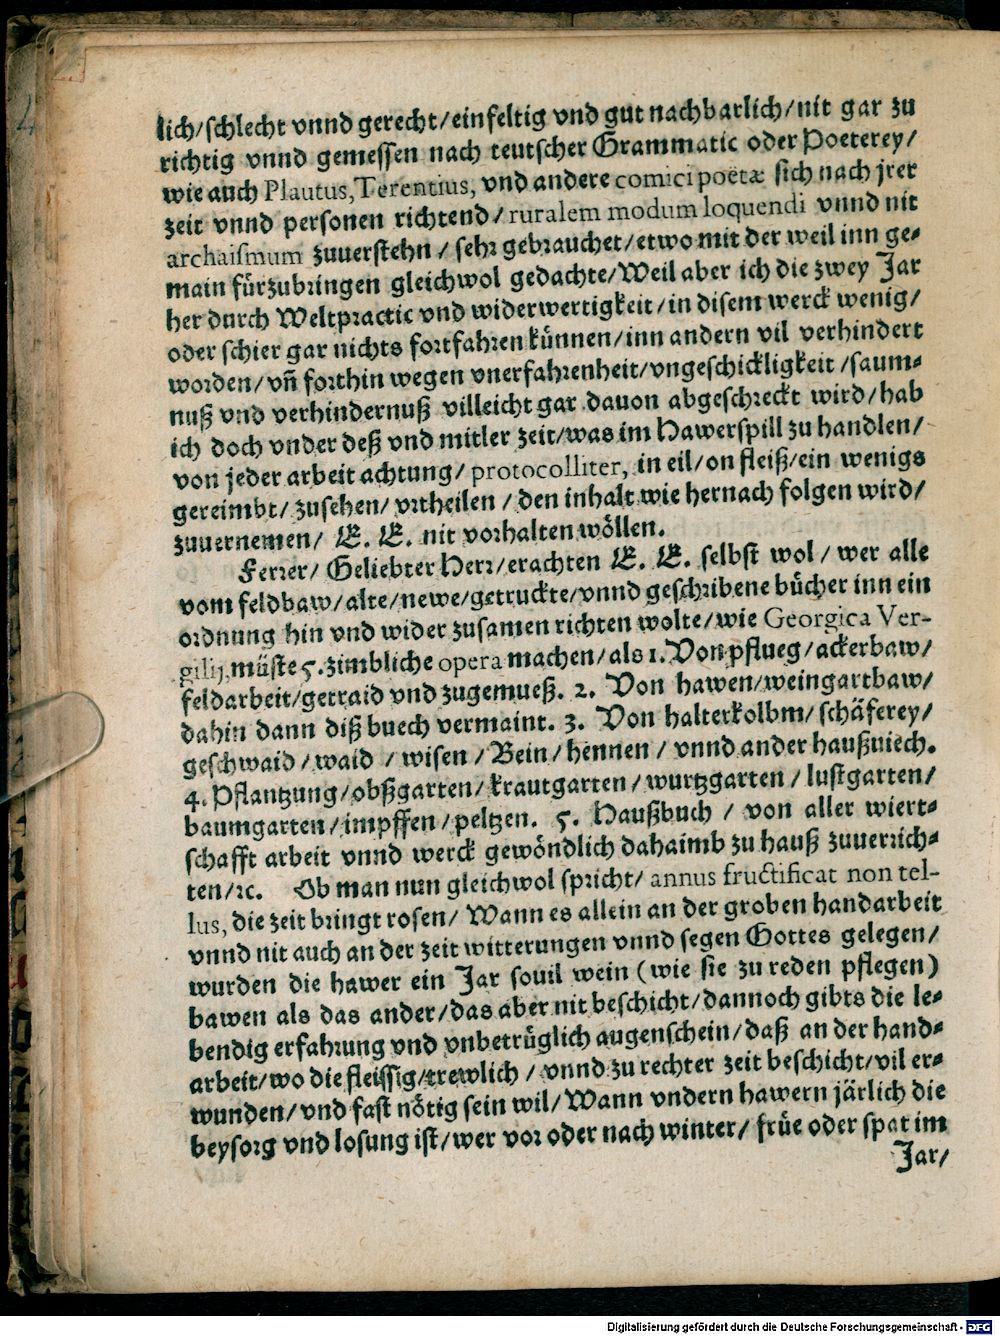 lich/schlecht vnnd gerecht/einfeltig vnd gut nachbarlich/nit gar zu
richtig vnnd gemessen nach teutscher Grammatic oder Poeterey/
wie auch Plautus, Terentius, vnd andere comici poëtæ sich nach jrer
zeit vnnd personen richtend/ruralem modum loquendi vnnd nit
archaismum zuuerstehn/sehr gebrauchet/etwo mit der weil inn ge-
main fürzubringen gleichwol gedachte/Weil aber ich die zwey Jar
her durch Weltpractic vnd widerwertigkeit/in disem werck wenig/
oder schier gar nichts fortfahren künnen/inn andern vil verhindert
worden/vñ forthin wegen vnerfahrenheit/vngeschickligkeit/saum-
nuß vnd verhindernuß villeicht gar dauon abgeschreckt wird/hab
ich doch vnder deß vnd mitler zeit/was im Hawerspill zu handlen/
von jeder arbeit achtung/protocolliter, in eil/on fleiß/ein wenigs
gereimbt/zusehen/vrtheilen/den inhalt wie hernach folgen wird/
zuuernemen/ E. E. nit vorhalten wöllen.
Ferrer/Geliebter Herr/erachten E. E. selbst wol/wer alle
vom feldbaw/alte/newe/getruckte/vnnd geschribene bücher inn ein
ordnung hin vnd wider zusamen richten wolte/wie Georgica Ver-
gilij, müste 5. zimbliche opera machen/als 1. Von pflueg/ackerbaw/
feldarbeit/getraid vnd zugemueß. 2. Von hawen/weingartbaw/
dahin dann diß buech vermaint. 3. Von halterkolbm/schäferey/
geschwaid/waid/wisen/Bein/hennen/vnnd ander haußviech.
4. Pflantzung/obßgarten/krautgarten/wurtzgarten/lustgarten/
baumgarten/impffen/peltzen. 5. Haußbuch/von aller wiert-
schafft arbeit vnnd werck gewöndlich dahaimb zu hauß zuuerrich-
ten/ꝛc. Ob man nun gleichwol spricht/annus fructificat non tel-
lus, die zeit bringt rosen/Wann es allein an der groben handarbeit
vnnd nit auch an der zeit witterungen vnnd segen Gottes gelegen/
wurden die hawer ein Jar souil wein (wie sie zu reden pflegen)
bawen als das ander/das aber nit beschicht/dannoch gibts die le-
bendig erfahrung vnd vnbetrüglich augenschein/daß an der hand-
arbeit/wo die fleissig/trewlich/vnnd zu rechter zeit beschicht/vil er-
wunden/vnd fast nötig sein wil/Wann vndern hawern järlich die
beysorg vnd losung ist/wer vor oder nach winter/früe oder spat im
Jar/
Digitalisierung gefördert durch die Deutsche Forschungsgemeinschaft - DFG